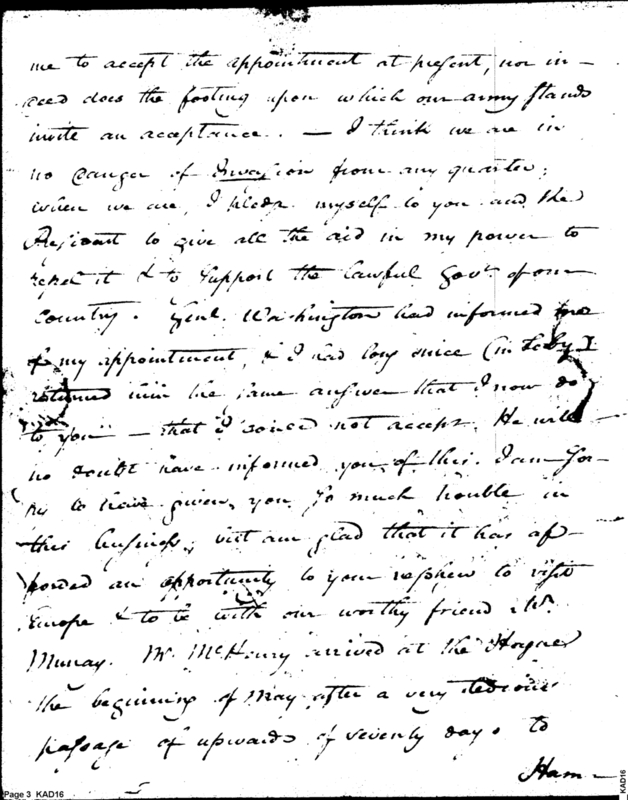 me to accept the appointment at present, nor in-
deed does the footing upon which our army stands
invite an acceptance. — I think we are in
no danger of Invasion from any quarter;
when we are, I pledge myself to you and the
President to give all the aid in my power to
repel it & to support the lawful Govt. of our
Country. Genl. Washington had informed me
of my appointment, & I had long since (in Feby) I
returned him the same answer that I now do
to you — that I could not accept. He will
no doubt have informed you of this. I am sor-
ry to have given you so much trouble in
this business; but am glad that it has af-
forded an opportunity to your nephew to visit
Europe & to be with our worthy friend Mr.
Murray. Mr. McHenry arrived at the Hague
the beginning of May after a very tedious
passage of upwards of seventy days to
Ham-
Page 3 KAD16
KAD16